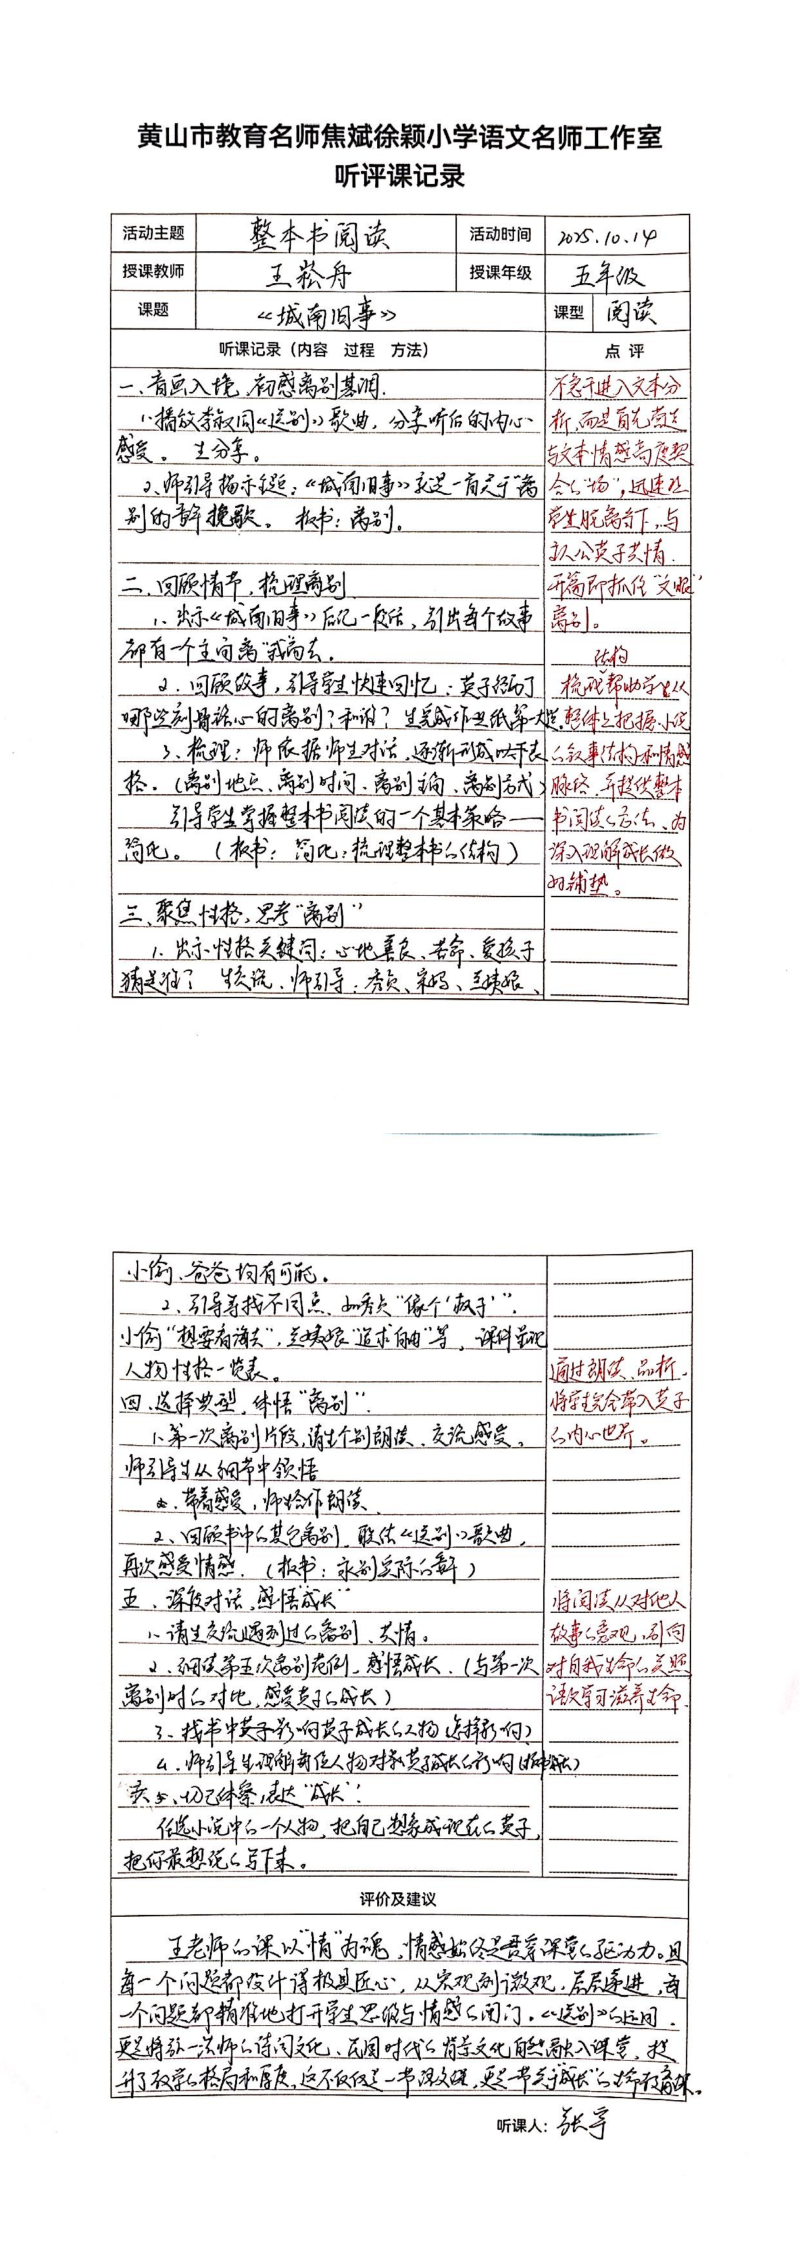 黄山市教育名师焦斌徐颖小学语文名师工作室
听评课记录
活动主题 整本书阅读 活动时间 2025.10.14
授课教师 王崧舟 授课年级 五年级
课题 《城南旧事》 课型 阅读
听课记录（内容 过程 方法）
点评
一、音画入境，初感离别基调.
1、播放李叔同《送别》歌曲，分享听后的内心
感受。 生分享。
2、师引导揭示主题：《城南旧事》就是一首关于“离
别的童年挽歌。 板书：离别。
二、回顾情节，梳理离别
1、出示《城南旧事》后记一段话，引出每个故事
都有一个主角离“我而去.
2、回顾故事，引导学生快速回忆：英子经历了
哪些刻骨铭心的离别？和谁？ 生完成作业纸第一大题.
3、梳理：师依据师生对话，逐渐形成以下表
格。（离别地点、离别时间、离别主角、离别方式）
引导学生掌握整本书阅读的一个基本策略——
简化。（板书：简化：梳理整本书的结构）
三、聚焦性格，思考“离别”
1、出示性格关键词：心地善良、苦命、爱孩子
猜是谁？ 生交流、师引导：秀贞、宋妈、兰姨娘、
不急于进入文本分
析，而是首先营造
与文本情感高度契
合的“场”，迅速让
学生脱离当下，与
主人公英子共情.
开篇即抓住“文眼”
离别。
结构
梳理帮助学生从
整体上把握小说
的叙事结构和情感
脉络，并提供整本
书阅读的方法、为
深入理解成长做
好铺垫。
小偷、爸爸均有可能。
2、引导寻找不同点、如秀贞“像个‘疯子’”.
小偷“想要看海去”，兰姨娘“追求自由”等，课件呈现
人物性格一览表。
四、选择典型，体悟“离别”.
1、第一次离别片段，请生个别朗读、交流感受。
师引导生从细节中领悟
带着感受，师生合作朗读.
2、回顾书中的其它离别，联结《送别》歌曲，
再次感受情感.（板书：永别实际的童年）
五、深度对话，感悟“成长”
1、请生交流遇到过的离别、共情。
2、细读第五次离别范例，感悟成长.（与第一次
离别时的对比，感受英子的成长）
3、找书中英子影响英子成长的人物（怎样影响）
4、师引导生理解每位人物对英子成长的影响（板书成长）
切己体察，表达“成长”：
任选小说中的一个人物，把自己想象成现在的英子，
把你最想说的写下来。
通过朗读、品析，
将学生完全带入英子
的内心世界。
将阅读从对他人
故事的旁观，引向
对自我生命的关照
语文学习滋养生命.
评价及建议
王老师的课以“情”为魂，情感始终是贯穿课堂的驱动力。且
每一个问题都设计得极具匠心，从宏观到微观，层层递进，每
一个问题都精准地打开学生思维与情感的闸门。《送别》的运用，
更是将弘一法师的诗词文化、民国时代的背景文化自然融入课堂，提
升了教学的格局和厚度。这不仅仅是一节语文课，更是一节关于“成长”的生命教育课。
听课人：张宇